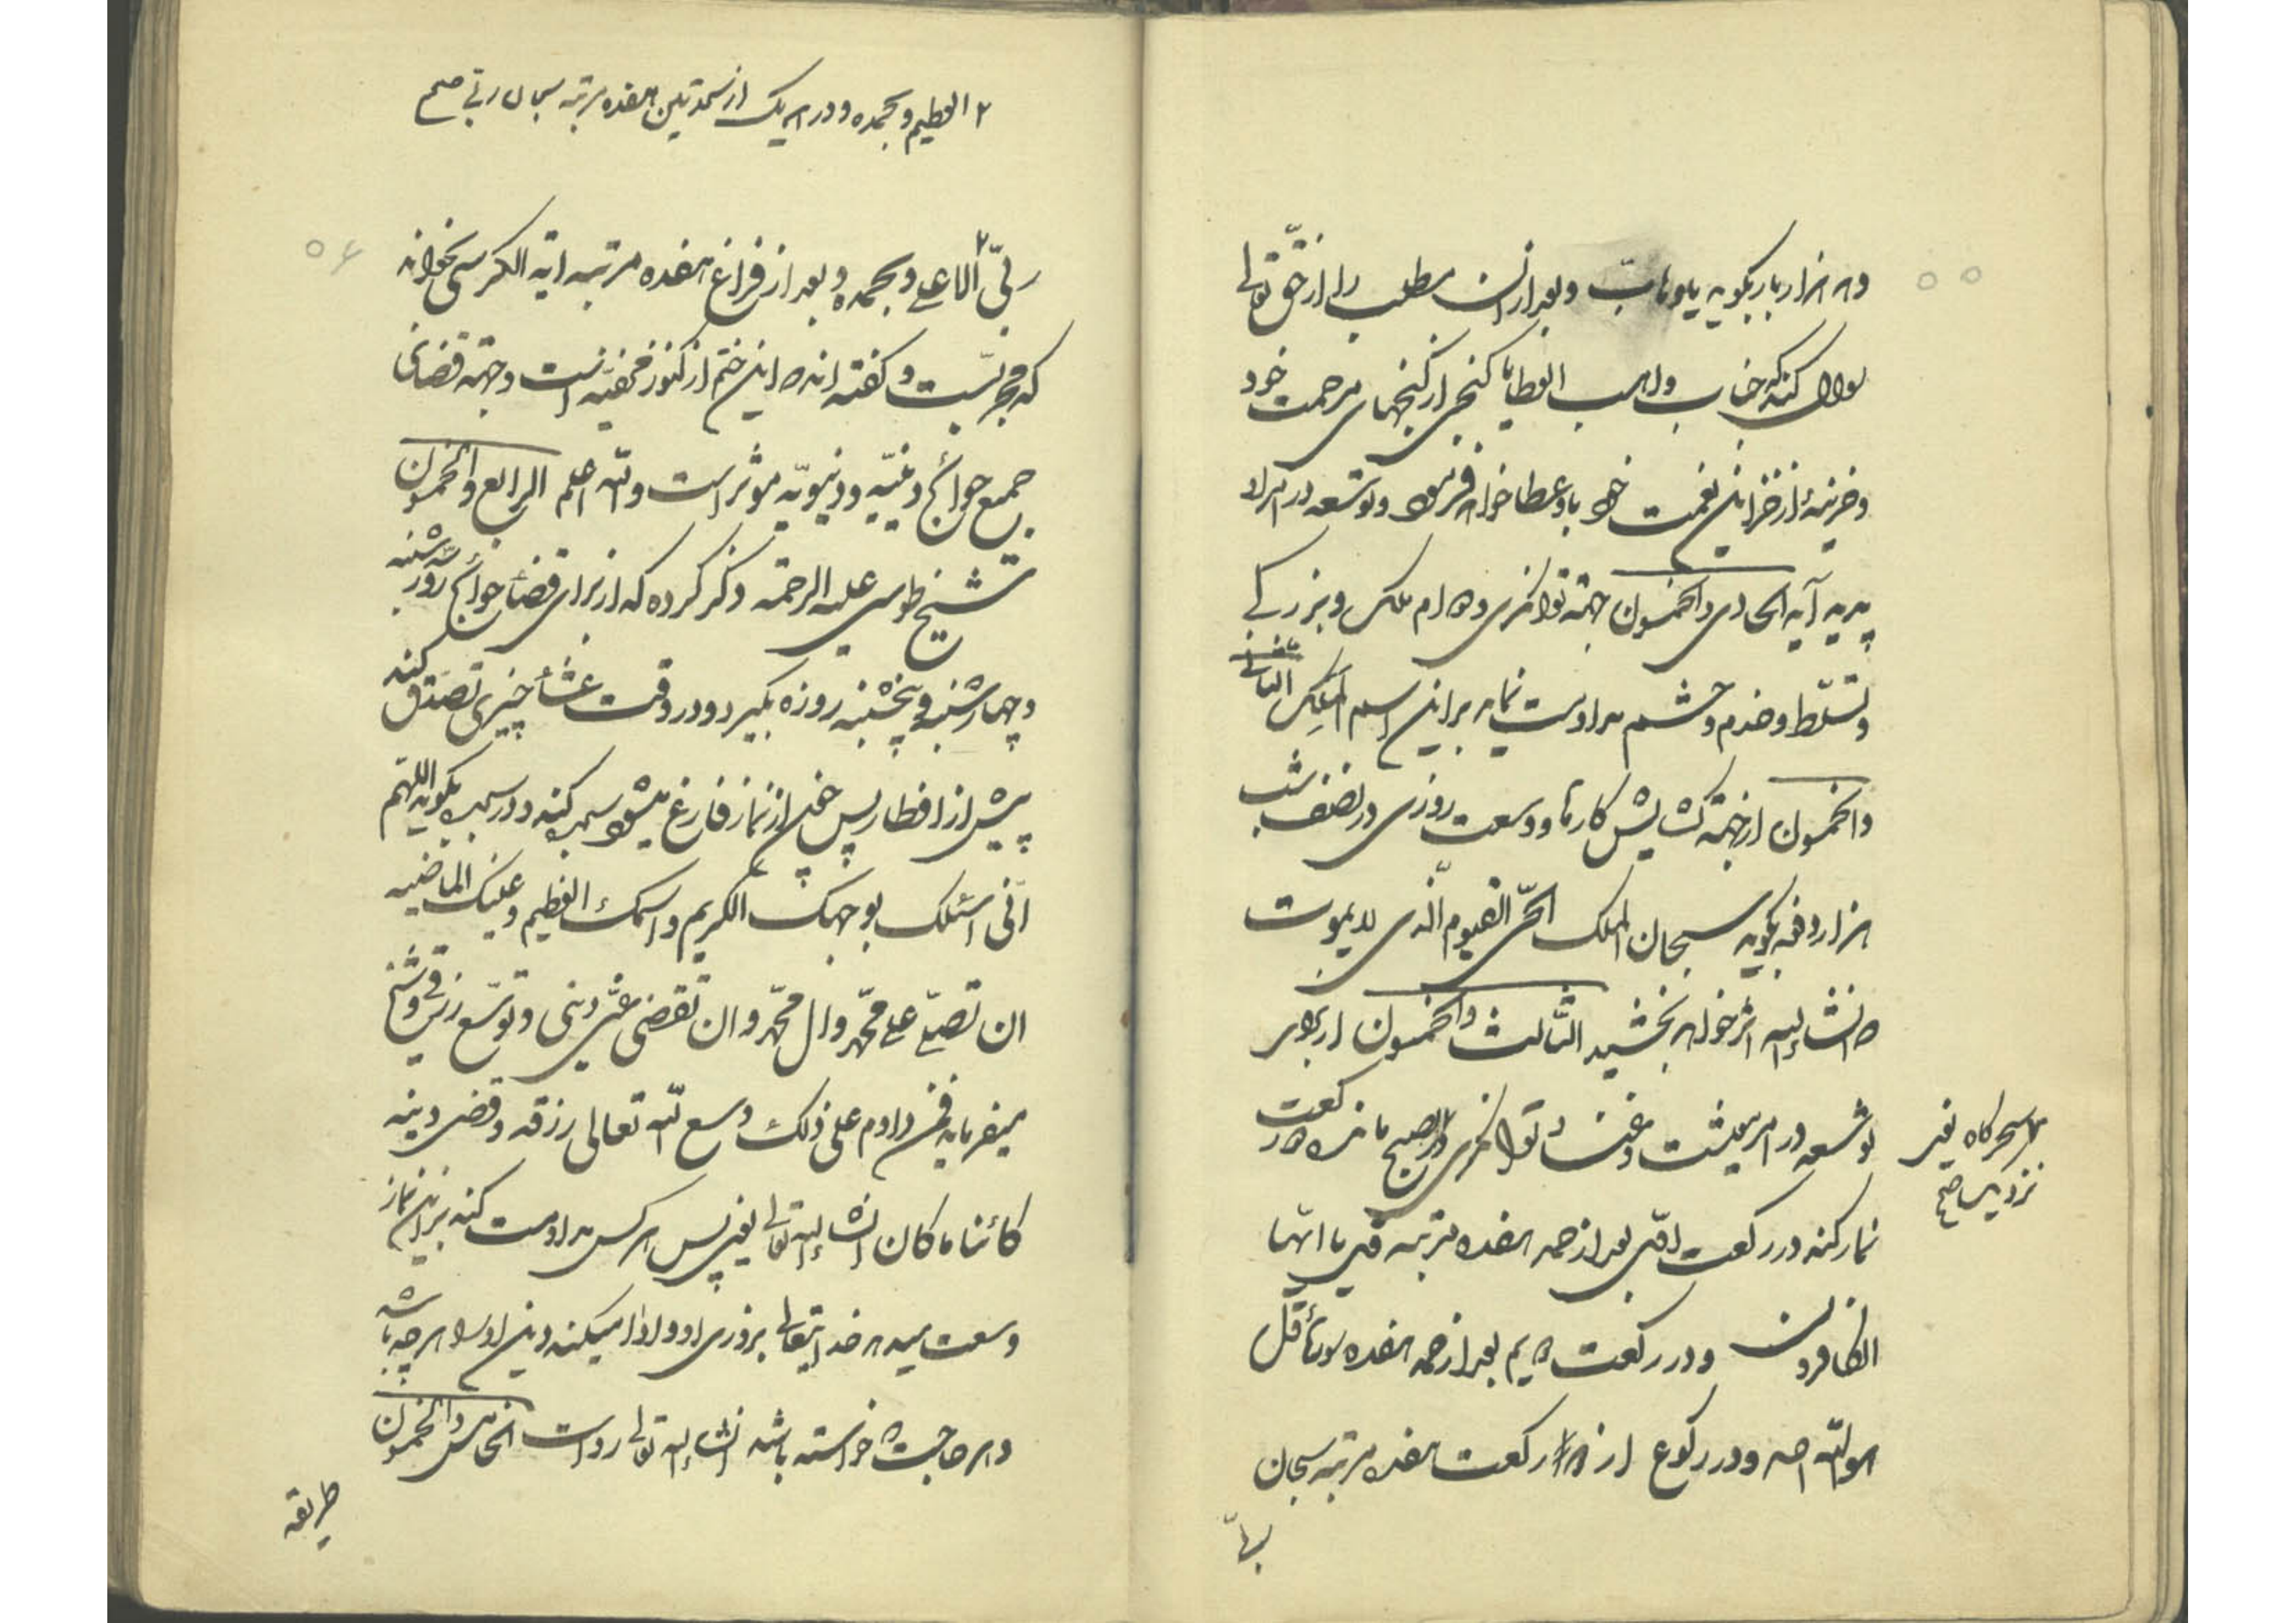 ۵۵
و هزار بار بگوید یا وهاب و بعد از آن مطلب را از حق تعالی
سوال کند که جناب واهب العطایا گنجی از گنجهای مرحمت خود
و خزینهٔ از خزاین نعمت خود باو عطا خواهد فرمود و توسعه در امر او
پدید آید الحادی والخمسون جهة توانکری و دوام ملک و بزرگی
و تسلّط و خدم و حشم مداومت نماید بر این اسم الملک الثانی
والخمسون از جهة کشایش کارها و وسعت روزی در نصف شب
هزار دفعه بگوید سبحان الملک الحیّ القیوم الّذی لا یموت
که انشاءالله اثر خواهد بخشید الثالث والخمسون از برای
توسعه در امر معیشت و غنا و توانکری در الصبح مانده دو رکعت
۲ سحرگاه یعنی
نزدیک صح
نماز کند در رکعت اوّل بعد از حمد هفده مرتبه قل یا ایّها
الکافرون و در رکعت دویم بعد از حمد هفده سورهٔ قل
هو الله احد و در رکوع از هر رکعت هفده مرتبه سبحان
ربّی
۲ العظیم و بحمده و در هر یک از سجدتین هفده مرتبه سبحان ربّی صح
۵۶
ربّی الاعلی و بحمده و بعد از فراغ هفده مرتبه ایة الکرسی بخواند
که مجرّبست و گفته اند که این ختم از کنوز مخفیّه است و جهة قضای
جمیع حوائج دینیّه و دنیویّه موثر است والله اعلم الرابع والخمسون
شیخ طوسی علیه الرحمة ذکر کرده که از برای قضاء حوائج روز سه شنبه
و چهارشنبه و پنجشنبه روزه بگیرد و در وقت عشاء چیزی تصدّق کند
پیش از افطار پس چون از نماز فارغ میشود سجده کند و در سجده بگوید اللهمّ
انّی اسئلک بوجهک الکریم واسمک العظیم وعینک الماضیه
ان تصلّی علی محمّد وال محمّد وان تقضی عنّی دینی وتوسّع رزقی و شیخ
میفرماید فمن داوم علی ذلک وسع الله تعالی رزقه وقضی دینه
کائنا ما کان انشاءالله تعالی یعنی پس هر کس مداومت کند بر این نماز
وسعت میدهد خدایتعالی بروزی او و ادا میکند دین او را هر چه باشد
و هر حاجت که خواسته باشد انشاءالله تعالی رواست الخامس والخمسون
طریقه